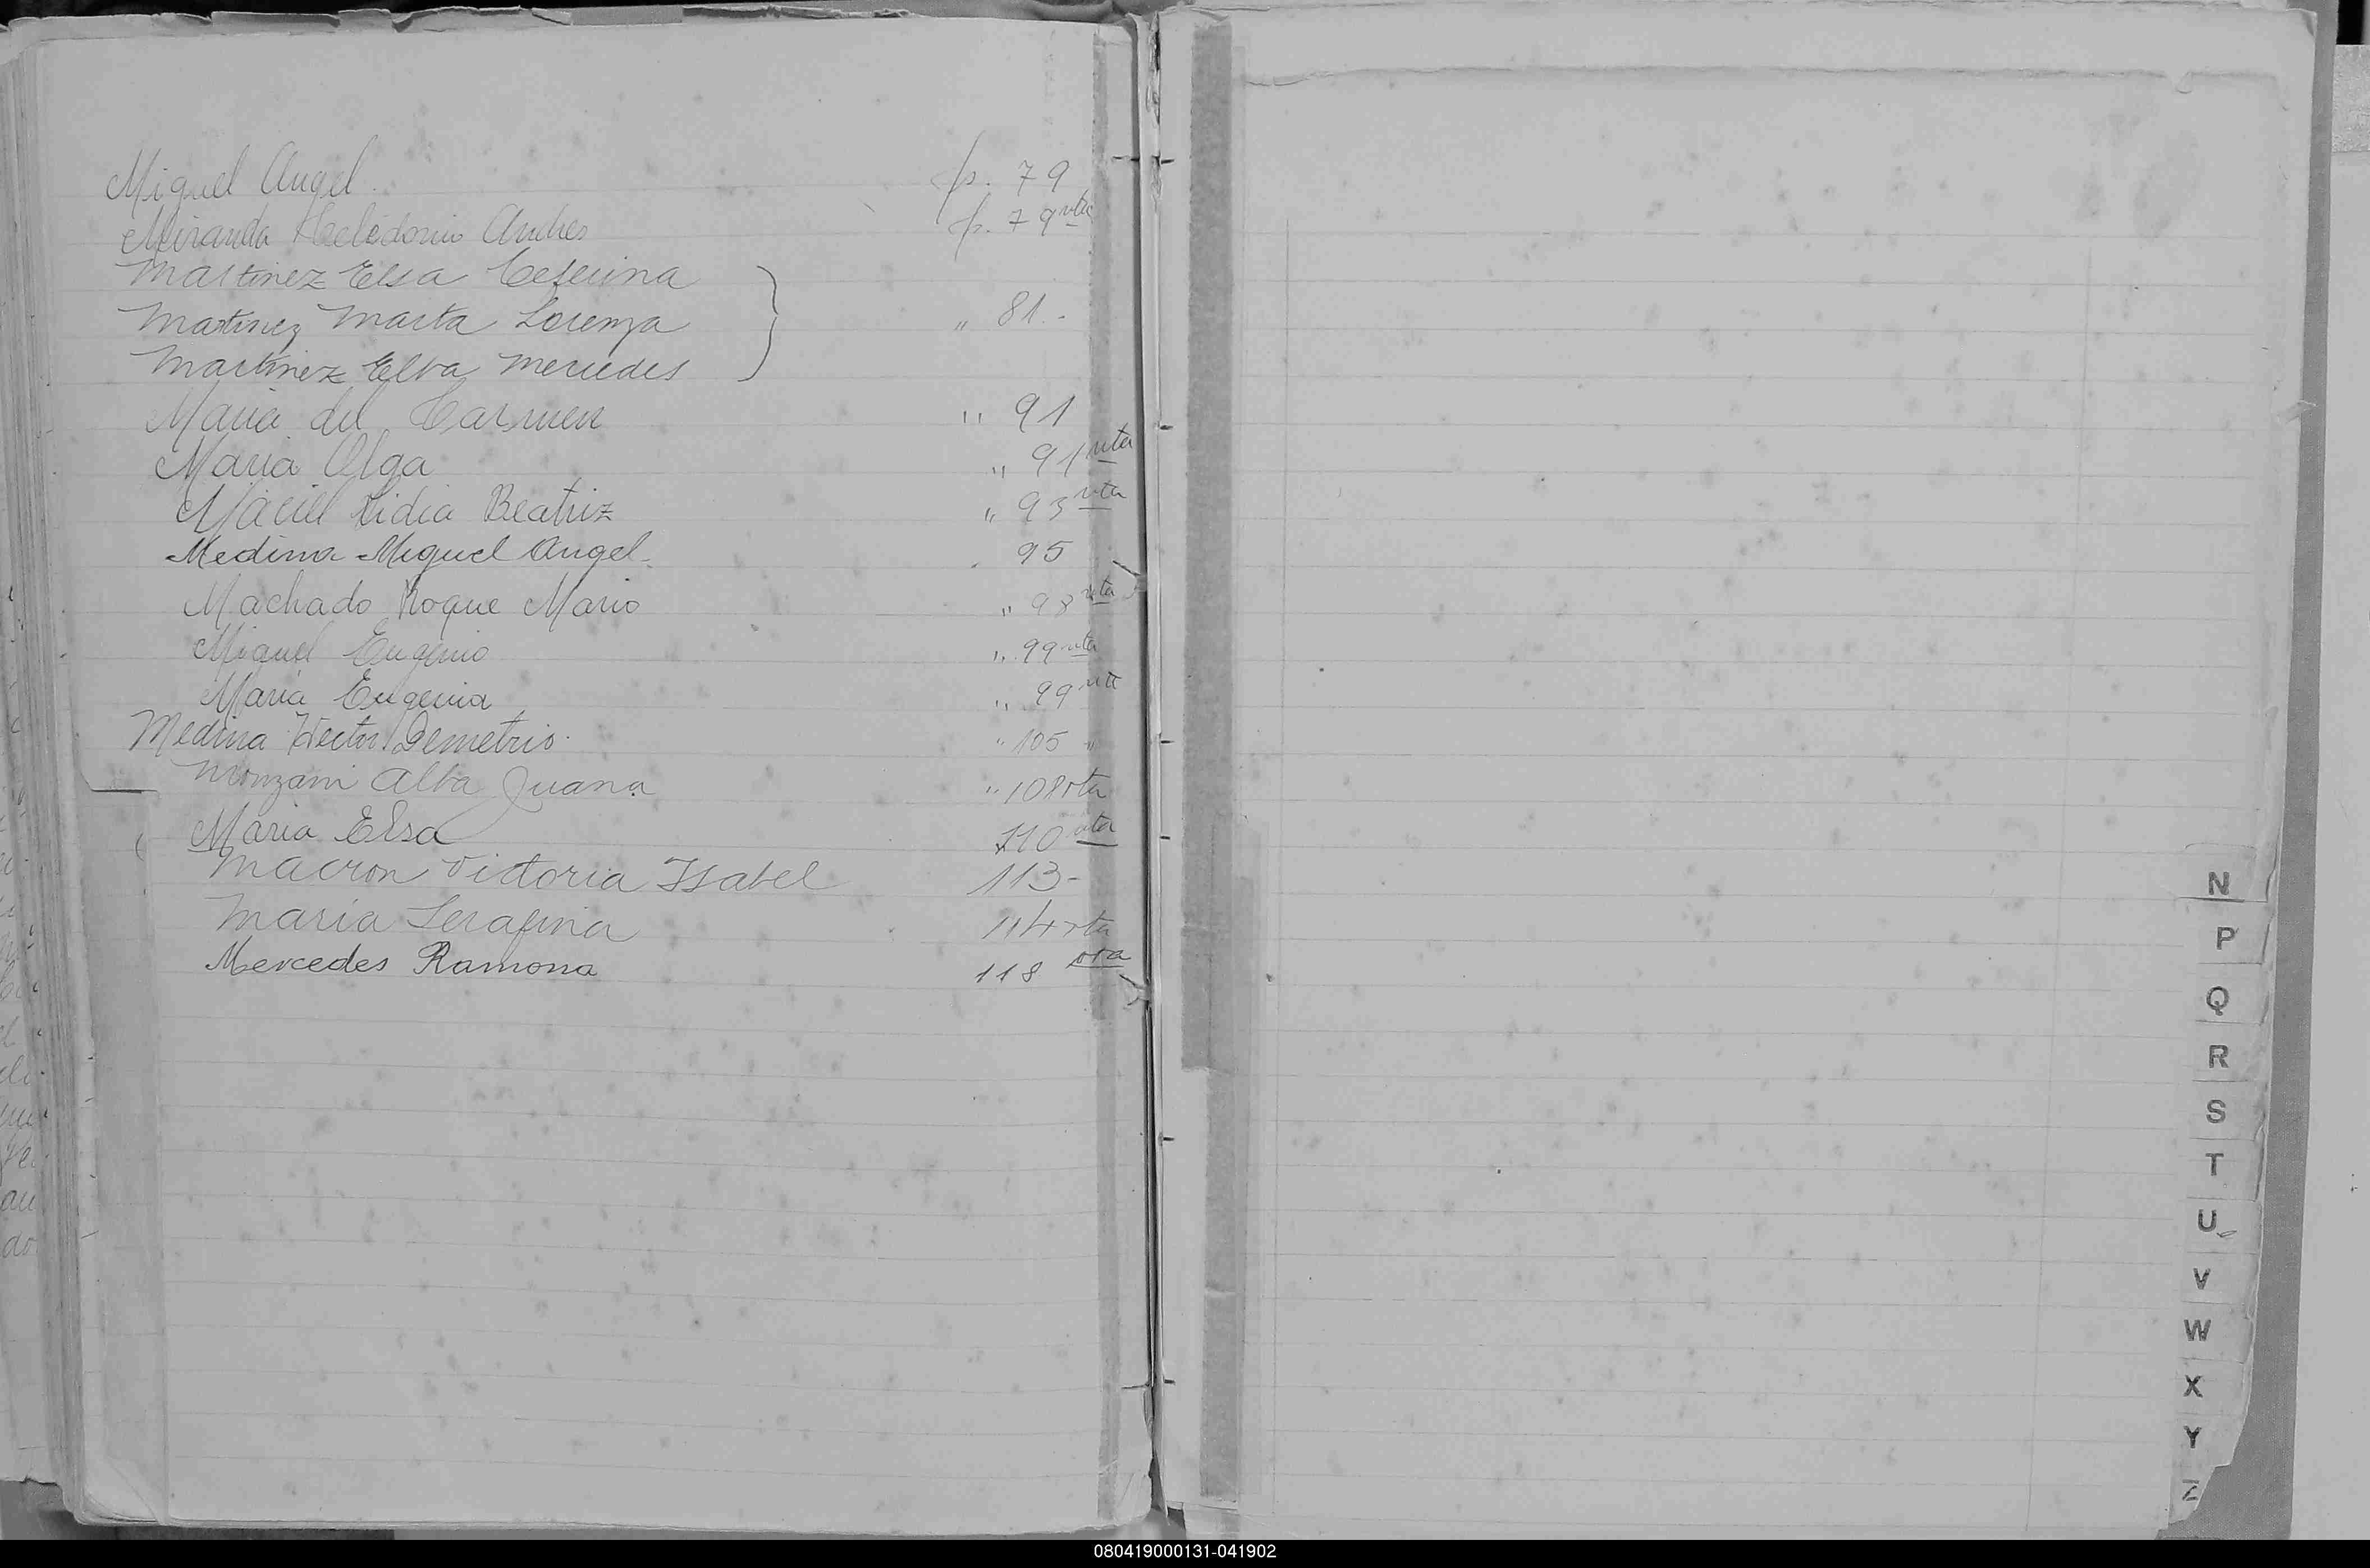 Miguel Angel. fs. 79
Miranda Celedonio Andres fs. 79 vta
Martinez Elsa Ceferina
Martinez Marta Lorenza } " 81.-
Martinez Elba Mercedes
Maria del Carmen " 91
Maria Olga " 91 vta
Maciel Lidia Beatriz " 93 vta
Medina Miguel Angel. 95
Machado Roque Mario " 98 vta
Miguel Eugenio " 99 vta
Maria Eugenia " 99 vta
Medina Hector Demetrio. " 105 "
Monzani Alba Juana " 108 vta
Maria Elsa 110 vta
Macron Victoria Isabel 113-
Maria Serafina 114 vta
Mercedes Ramona 118 vta
N
P
Q
R
S
T
U
V
W
X
Y
Z
080419000131-041902